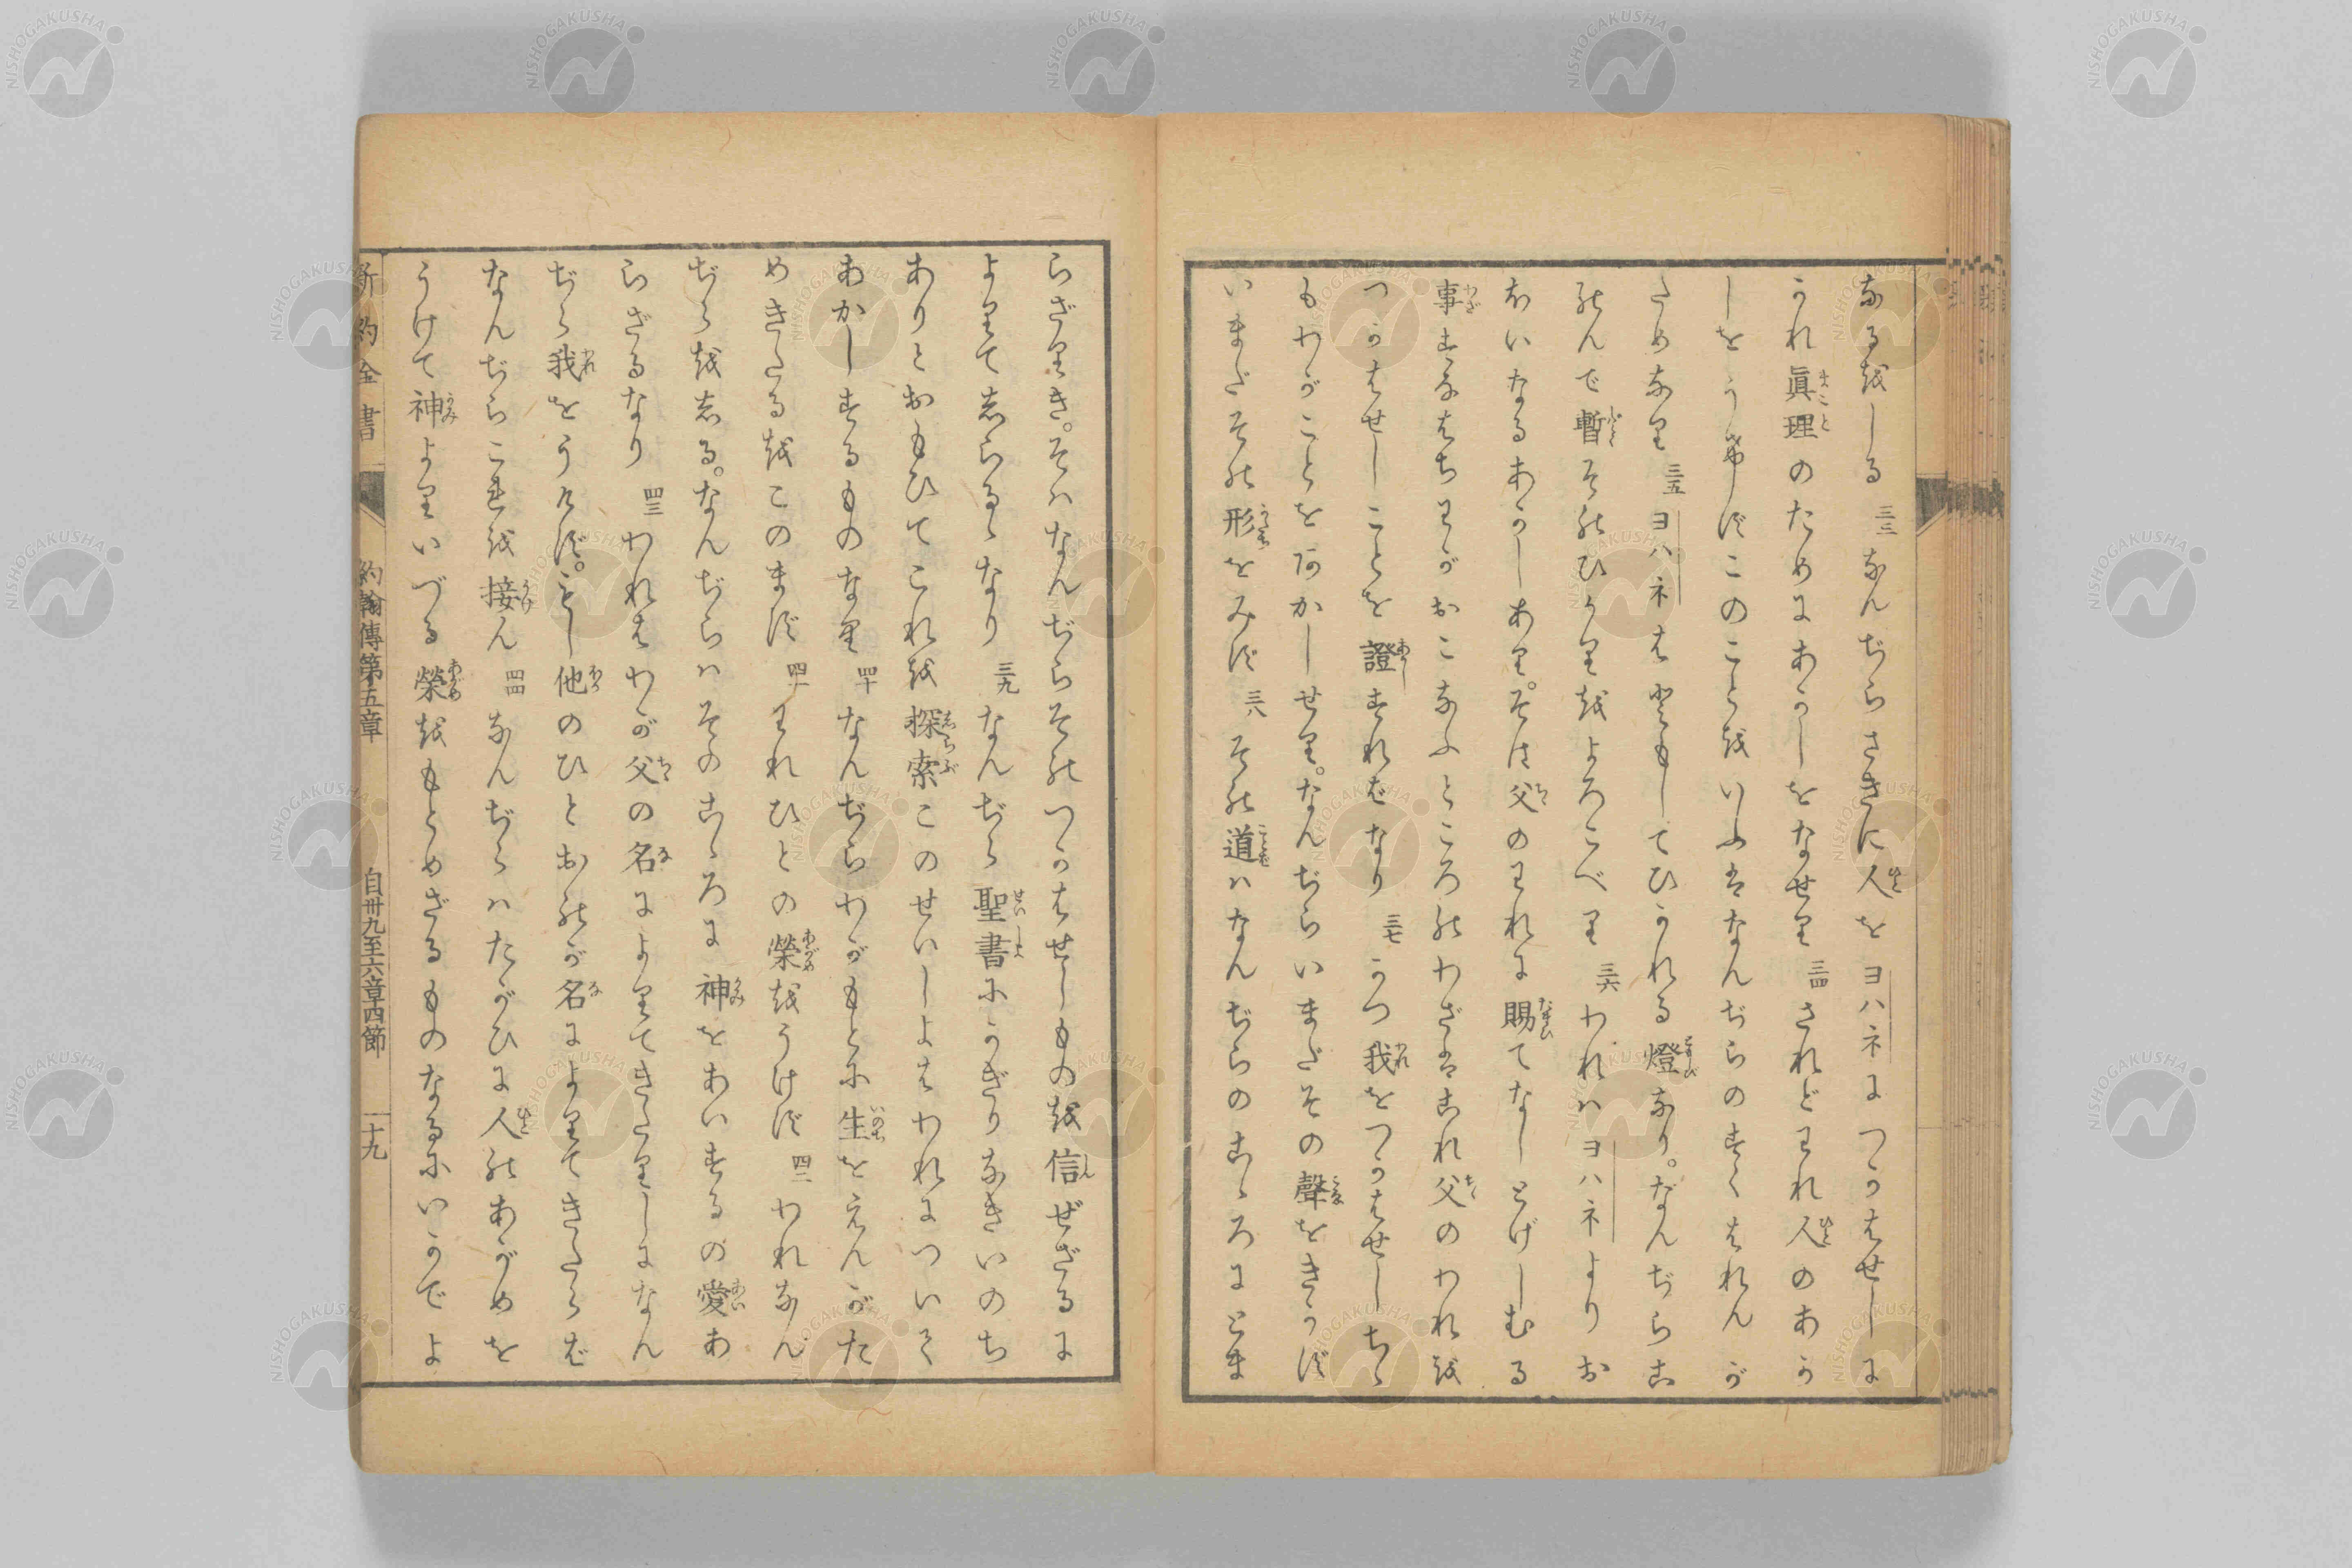 なるをしる 三三 なんぢらさきに人をヨハネにつかはせしに
かれ眞理のためにあかしをなせり 三四 されどわれ人のあか
しをうけずこのことをいふはなんぢらのすくはれんが
ためなり 三五 ヨハネはともしてひかれる燈なり。なんぢらこ
のんで暫そのひかりをよろこべり 三六 われハヨハネよりお
ほいなるあかしあり。そは父のわれに賜てなしとげしむる
事すなはちわがおこなふところのわざはこれ父のわれを
つかはせしことを證すればなり 三七 かつ我をつかはせしちゝ
もわがことをあかしせり。なんぢらいまだその聲をきかず
いまだその形をみず 三八 その道ハなんぢらのこゝろにとま
らざりき。そハなんぢらそのつかはせしものを信ぜざるに
よりてしらるゝなり 三九 なんぢら聖書にかぎりなきいのち
ありとおもひてこれを探索このせいしよはわれについて
あかしするものなり 四十 なんぢらわがもとに生をえんがた
めきたるをこのまず 四一 われひとの榮をうけず 四二 われなん
ぢらをしる。なんぢらハそのこゝろに神をあいするの愛あ
らざるなり 四三 われはわが父の名によりてきたりしになん
ぢら我をうけず。もし他のひとおのが名によりてきたらば
なんぢらこれを接ん 四四 なんぢらハたがひに人のあがめを
うけて神よりいづる榮をもとめざるものなるにいかでよ
新約全書 約翰傳第五章 自卅九至六章四節 十九
NISHOGAKUSHA